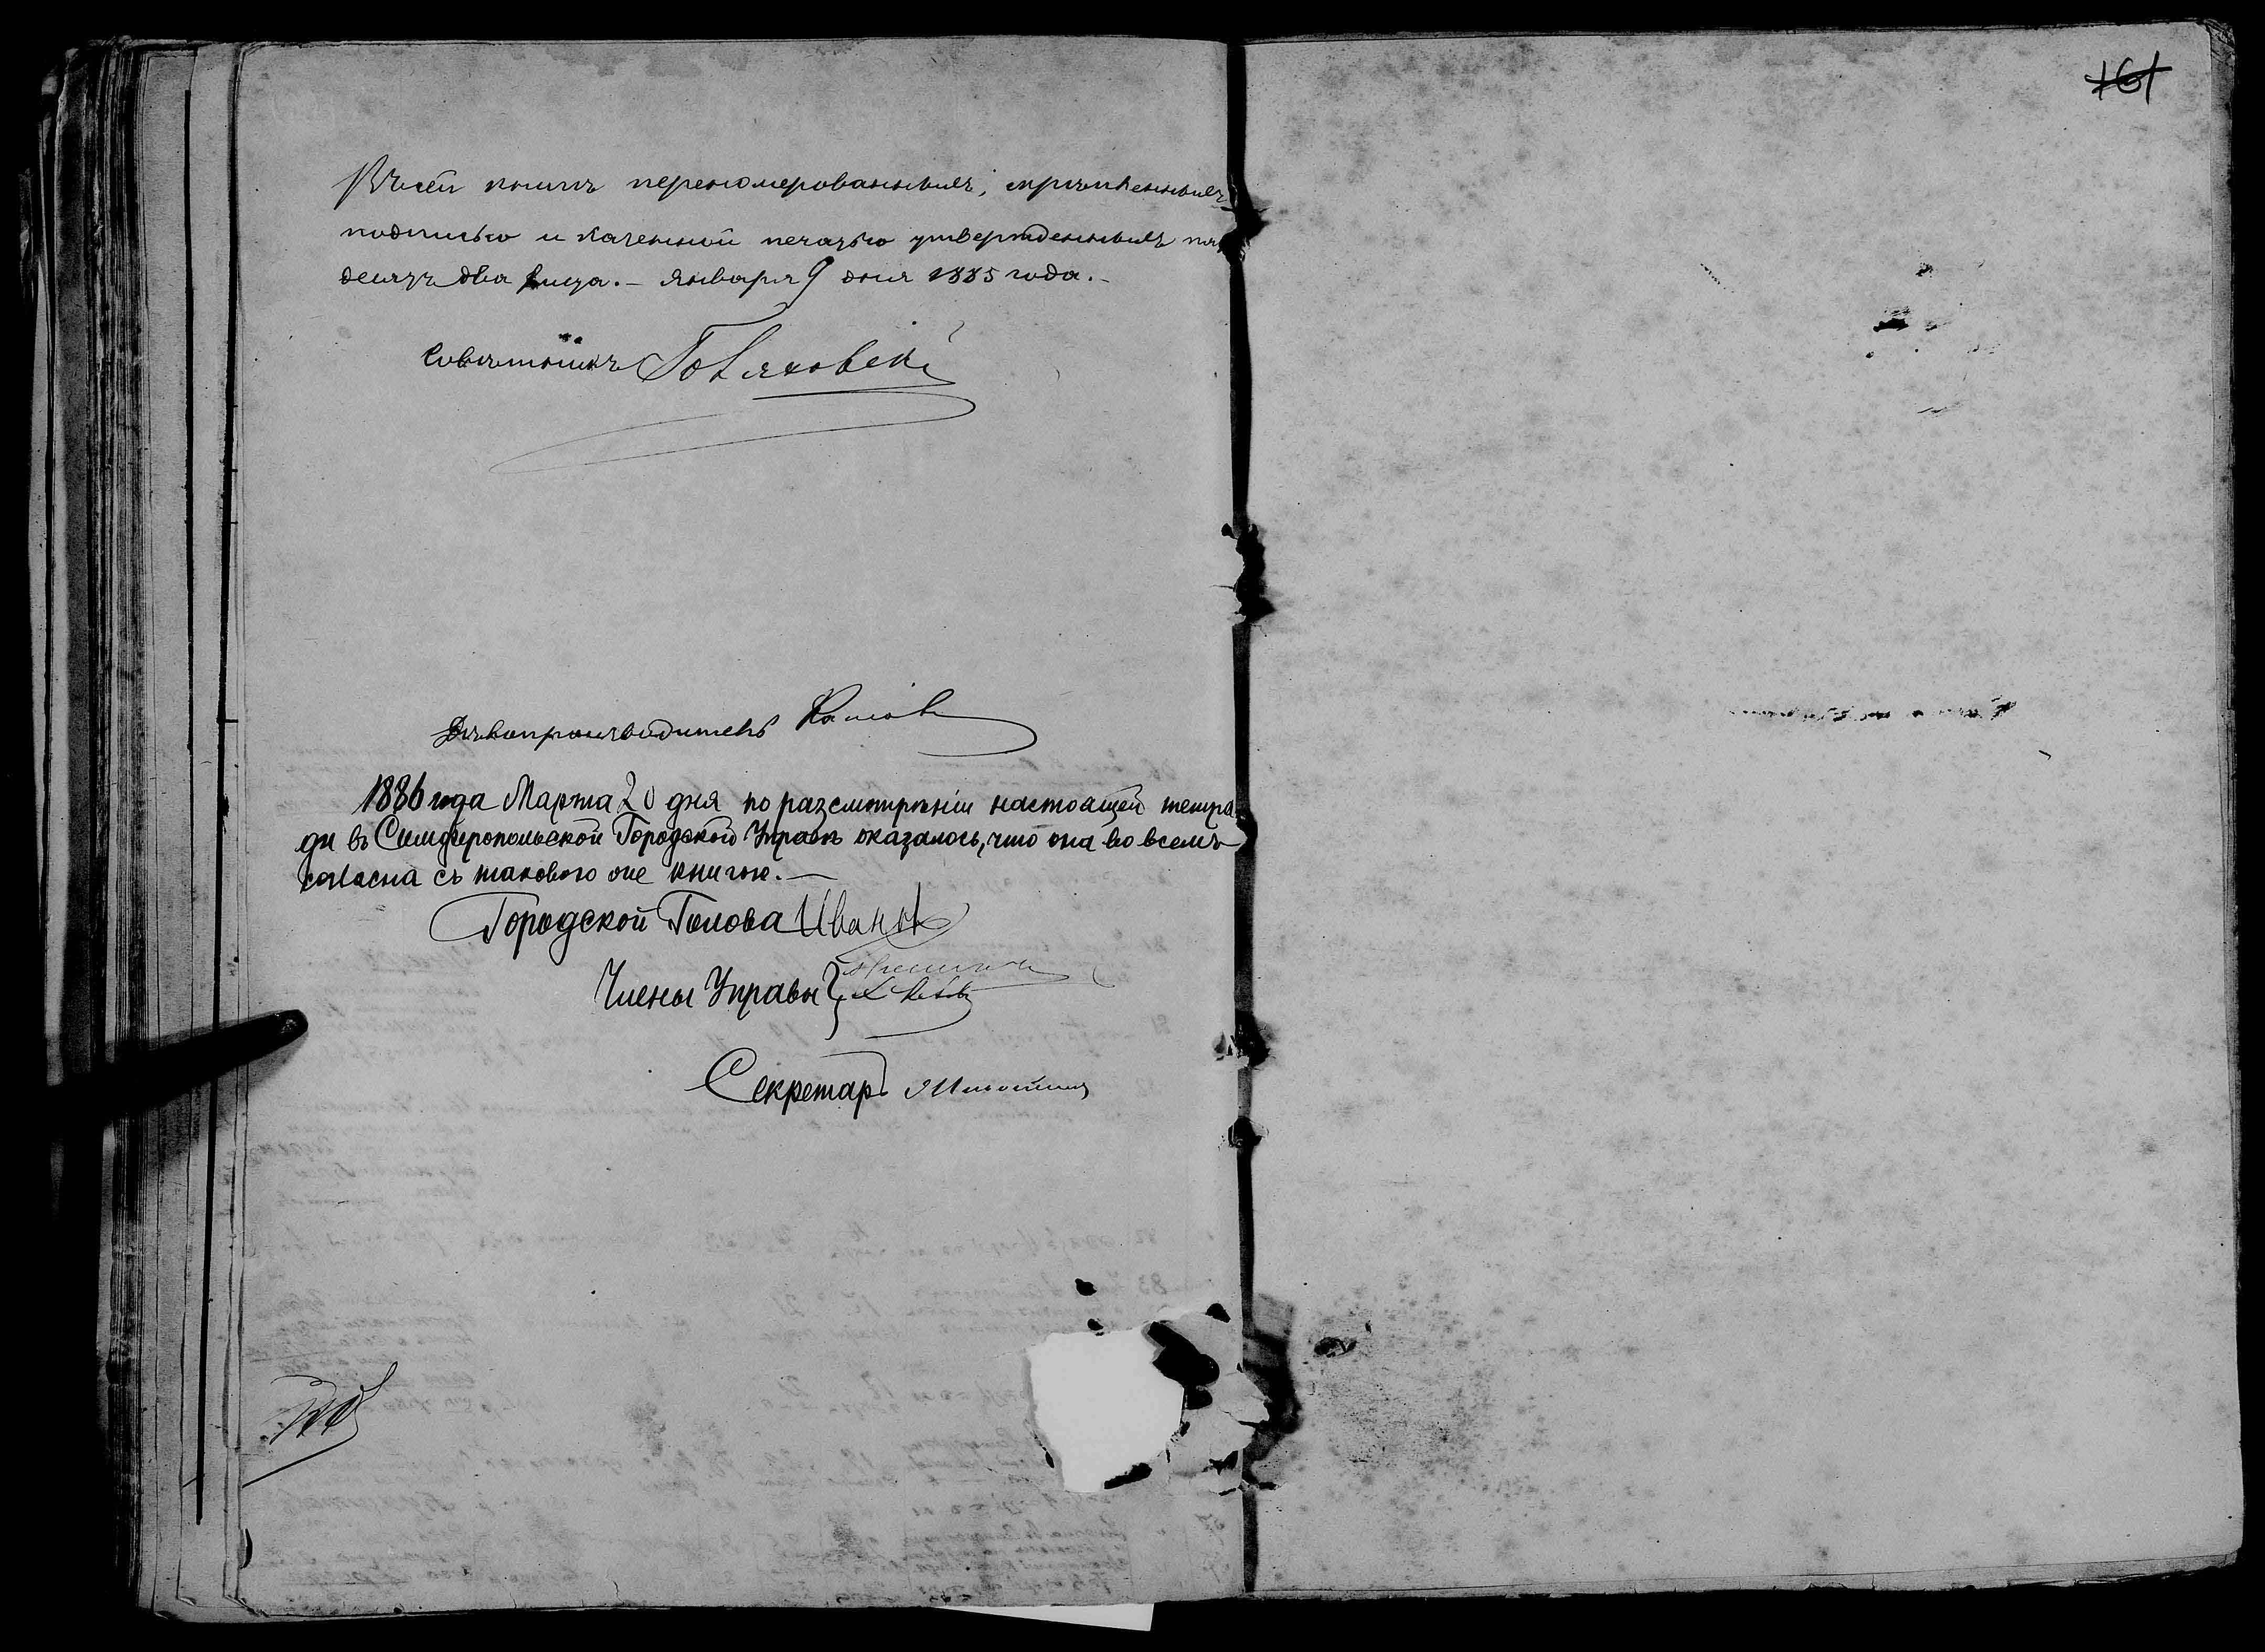 161
Въ сей книгѣ перенумерованныхъ, скрѣпленныхъ
подписью и казенной печатью утвержденныхъ пять
десятъ два листа. – Января 9 дня 1885 года. –
Совѣтникъ
Дѣлопроизводитель
1886 года Марта 20 дня по разсмотрѣнiи настоящей тетра
ди въ Симферопольской Городской Управѣ оказалось, что она во всемъ
согласна съ таковою же книгою. –
Городской Голова Ивановъ
Члены Управы
Секретарь